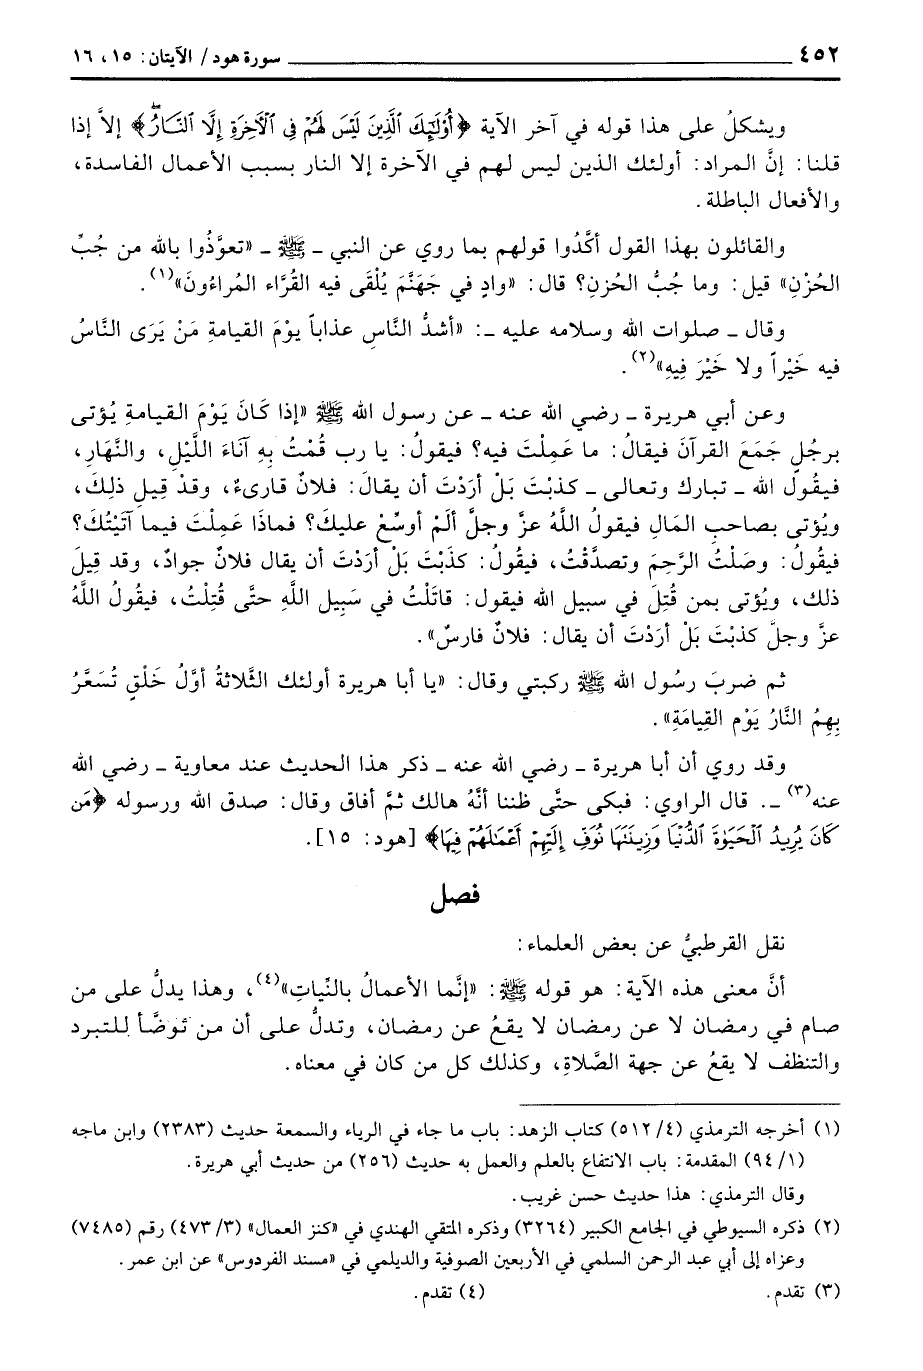 ٤٥٢ سورة هود / الآيتان: ١٥، ١٦
ويشكلُ على هذا قوله في آخر الآية ﴿أُوْلَٰٓئِكَ ٱلَّذِينَ لَيْسَ لَهُمْ فِي ٱلْأَخِرَةِ إِلَّا ٱلنَّارُ﴾ إلاَّ إذا
قلنا: إنَّ المراد: أولئك الذين ليس لهم في الآخرة إلا النار بسبب الأعمال الفاسدة،
والأفعال الباطلة.
والقائلون بهذا القول أكَّدُوا قولهم بما روي عن النبي ـ ﷺ ـ «تعوَّذُوا بالله من جُبِّ
الحُزْنِ» قيل: وما جُبُّ الحُزنِ؟ قال: «وادٍ في جَهَنَّمَ يُلْقَى فيه القُرَّاء المُراءُونَ»(١).
وقال ـ صلوات الله وسلامه عليه ـ: «أشدُّ النَّاسِ عذاباً يوْمَ القيامةِ مَنْ يَرَى النَّاسُ
فيه خَيْراً ولا خَيْرَ فِيهِ»(٢).
وعن أبي هريرة ـ رضي الله عنه ـ عن رسول الله ﷺ «إذا كَانَ يَوْمَ القيامةِ يُؤتى
برجُلٍ جَمَعَ القرآنَ فيقالُ: ما عَمِلْتَ فيه؟ فيقولُ: يا رب قُمْتُ بِهِ آنَاءَ اللَّيْلِ، والنَّهَارِ،
فيقُولُ الله ـ تبارك وتعالى ـ كذبْتَ بَلْ أردْتَ أن يقالَ: فلانٌ قارىءٌ، وقدْ قِيلِ ذلِكَ،
ويُؤتى بصاحبِ المَالِ فيقولُ اللَّهُ عزَّ وجلَّ ألَمْ أوسِّعْ عليكَ؟ فماذَا عَمِلْتَ فيما آتَيْتُكَ؟
فيقولُ: وصَلْتُ الرَّحِمَ وتصدَّقْتُ، فيقُولُ: كذَبْتَ بَلْ أردْتَ أن يقال فلانٌ جوادٌ، وقد قِيلَ
ذلك، ويُؤتى بمن قُتِلَ في سبيل الله فيقول: قاتَلْتُ في سَبِيلِ اللَّهِ حتَّى قُتِلْتُ، فيقُولُ اللَّهُ
عزَّ وجلَّ كذبْتَ بَلْ أرَدْتَ أن يقال: فلانٌ فارسٌ».
ثم ضربَ رسُول الله ﷺ ركبتي وقال: «يا أبا هريرة أولئك الثَّلاثةُ أوَّلُ خَلْقٍ تُسَعَّرُ
بِهِمُ النَّارُ يَوْم القِيامَةِ».
وقد روي أن أبا هريرة ـ رضي الله عنه ـ ذكر هذا الحديث عند معاوية ـ رضي الله
عنه(٣) ـ. قال الراوي: فبكى حتَّى ظننا أنَّهُ هالك ثمَّ أفاق وقال: صدق الله ورسوله ﴿مَن
كَانَ يُرِيدُ ٱلْحَيَوٰةَ ٱلدُّنْيَا وَزِينَتَهَا نُوَفِّ إِلَيْهِمْ أَعْمَٰلَهُمْ فِيهَا﴾ [هود: ١٥].
فصل
نقل القرطبيُّ عن بعض العلماء:
أنَّ معنى هذه الآية: هو قوله ﷺ: «إنَّما الأعمالُ بالنِّياتِ»(٤)، وهذا يدلُّ على من
صام في رمضان لا عن رمضان لا يقعُ عن رمضان، وتدلُّ على أن من توضَّأ للتبرد
والتنظف لا يقعُ عن جهة الصَّلاةِ، وكذلك كل من كان في معناه.
(١) أخرجه الترمذي (٤/ ٥١٢) كتاب الزهد: باب ما جاء في الرياء والسمعة حديث (٢٣٨٣) وابن ماجه
(١/ ٩٤) المقدمة: باب الانتفاع بالعلم والعمل به حديث (٢٥٦) من حديث أبي هريرة.
وقال الترمذي: هذا حديث حسن غريب.
(٢) ذكره السيوطي في الجامع الكبير (٣٢٦٤) وذكره المتقي الهندي في «كنز العمال» (٣/ ٤٧٣) رقم (٧٤٨٥)
وعزاه إلى أبي عبد الرحمن السلمي في الأربعين الصوفية والديلمي في «مسند الفردوس» عن ابن عمر.
(٣) تقدم. (٤) تقدم.